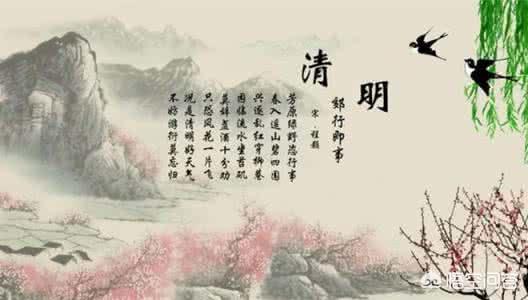 清明
郊行即事
宋·程颢
芳原绿野恣行事
春入遥山碧四围
兴逐乱红穿柳巷
困临流水坐苔矶
莫辞盏酒十分劝
只恐风花一片飞
况是清明好天气
不妨游衍莫忘归
悟空问答